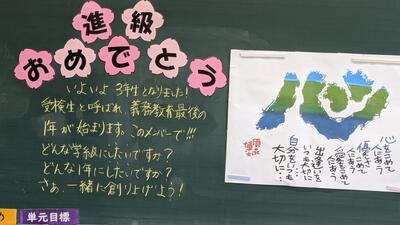 進級
おめでとう
いよいよ 3年生となりました!
受検生と呼ばれ、義務教育最後の
1年が始まります。このメンバーで!!!
どんな学級にしたいですか?
どんな1年にしたいですか?
さぁ、一緒に創り上げよう!
心
心をこめて
人にあう
優しさ
こめて
人にあう
愛をこめて
人にあう
出逢いを
いつも大切に
自分をいつも
大切に…
め
単元目標